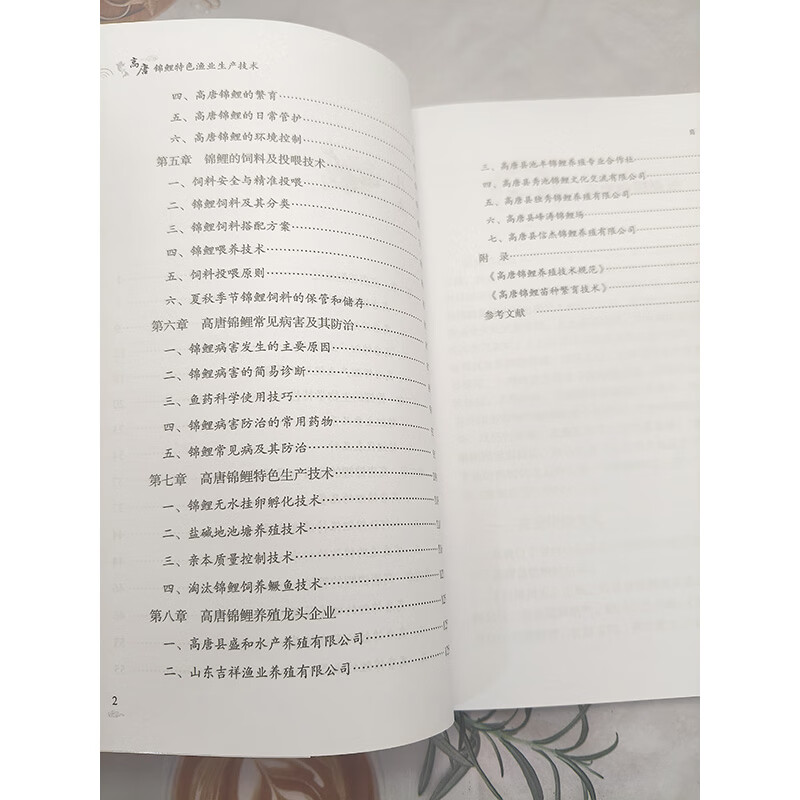 高唐 锦鲤特色渔业生产技术
四、高唐锦鲤的繁育
五、高唐锦鲤的日常管护
六、高唐锦鲤的环境控制
第五章 锦鲤的饲料及投喂技术
一、饲料安全与精准投喂
二、锦鲤饲料及其分类
三、锦鲤饲料搭配方案
四、锦鲤喂养技术
五、饲料投喂原则
六、夏秋季节锦鲤饲料的保管和储存
第六章 高唐锦鲤常见病害及其防治
一、锦鲤病害发生的主要原因
二、锦鲤病害的简易诊断
三、鱼药科学使用技巧
四、锦鲤病害防治的常用药物
五、锦鲤常见病及其防治
第七章 高唐锦鲤特色生产技术
一、锦鲤无水挂卵孵化技术
二、盐碱地池塘养殖技术
三、亲本质量控制技术
四、淘汰锦鲤饲养鳜鱼技术
第八章 高唐锦鲤养殖龙头企业
一、高唐县盛和水产养殖有限公司
二、山东吉祥渔业养殖有限公司
2
三、高唐县池丰锦鲤养殖专业合作社
四、高唐县秀池锦鲤文化交流有限公司
五、高唐县独秀锦鲤养殖有限公司
六、高唐县峰涛锦鲤场
七、高唐县信杰锦鲤养殖有限公司
附 录
《高唐锦鲤养殖技术规范》
《高唐锦鲤苗种繁育技术》
参考文献